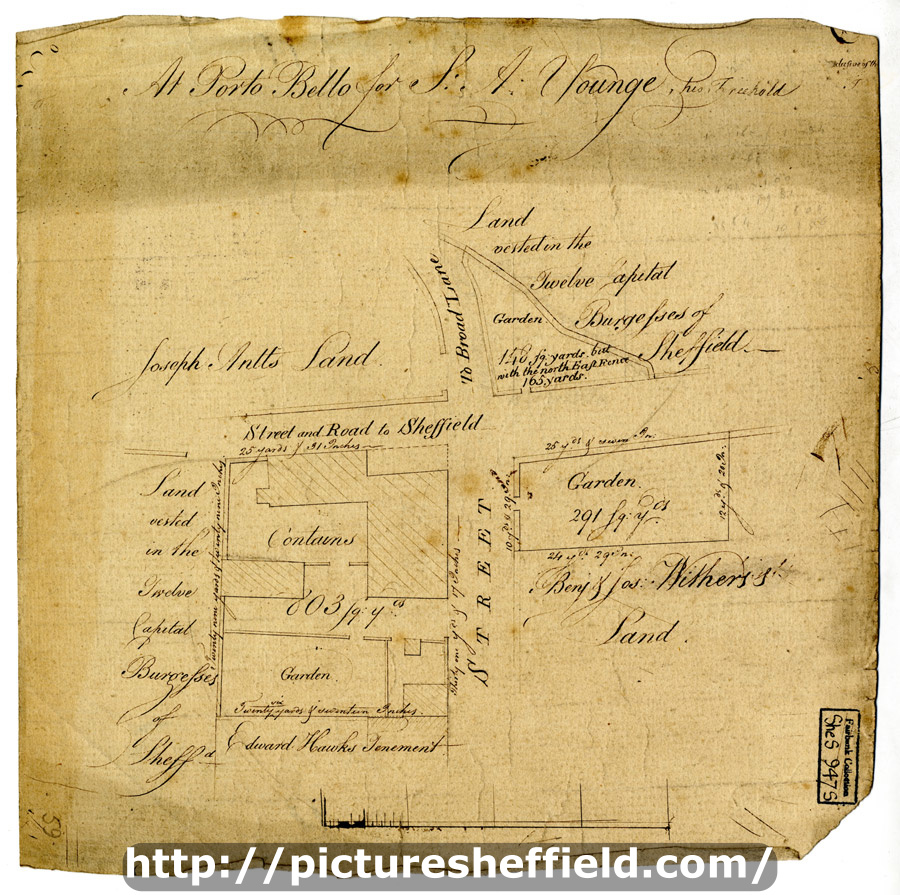 At Porto Bello for S: A: Younge, his Freehold
Land
vested in the
Twelve Capital
Burgesses of
Sheffield
To Broad Lane
Garden
148 sq. yards, but
with the north East Fence
165 yards.
Joseph Antts Land.
Street and Road to Sheffield
25 yards & 31 Inches
25 yds & seven In:
Land
vested
in the
Twelve
Capital
Burgesses
of
Sheffd
Twenty nine yards & twenty nine Inches
Contains
803 sq: yds
Garden.
Twenty six yards & seventeen Inches.
Edward Hawks Tenement
Thirty one yds & 17 Inches
STREET
10 yds & 29 In:
Garden.
291 sq: yds
12 yds & 20 In:
24 yds 29 In:
Benj & Jos: Withers's
Land.
59
Fairbank Collection
SheS 947S
http://picturesheffield.com/